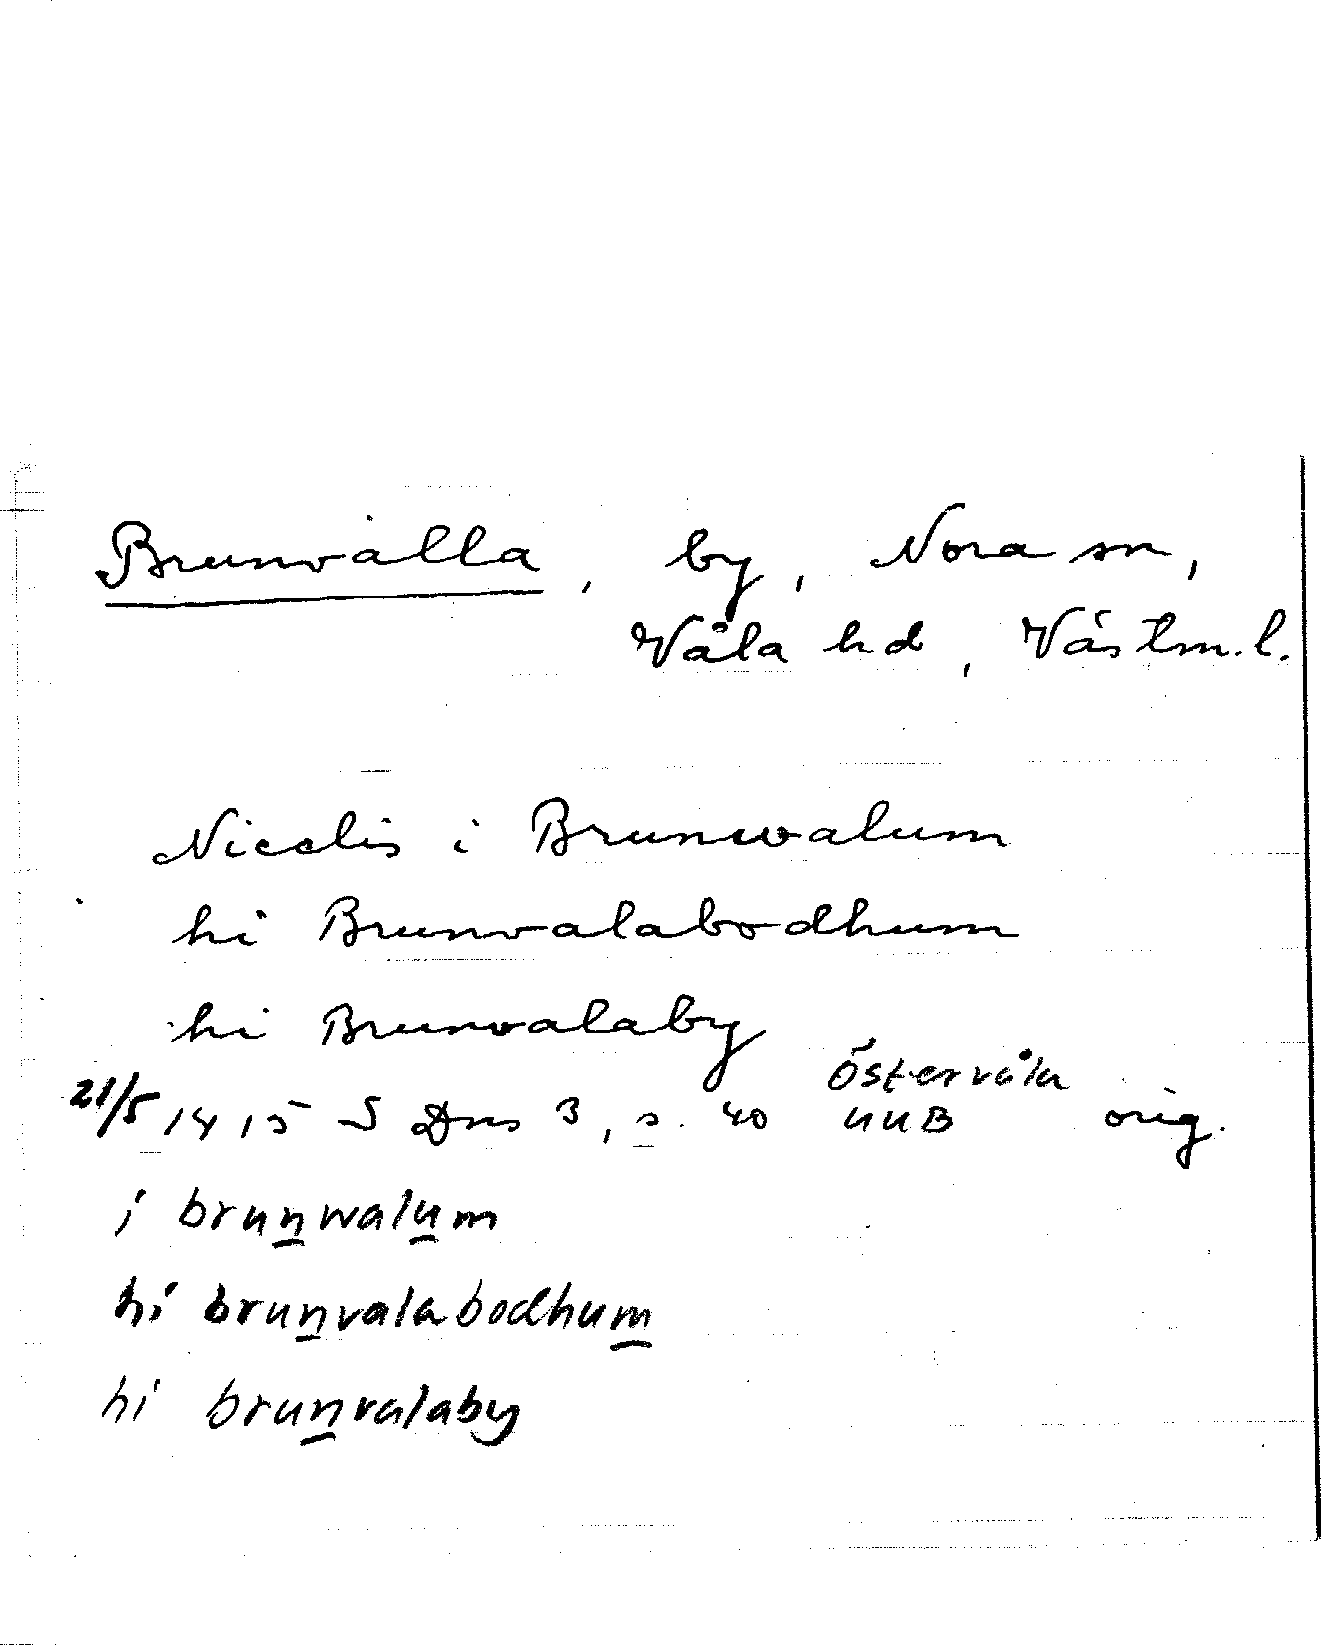 Brunvålla, by, Nora sn,
Våla hd, Västm. l.
Nicclis i Brunwalum
hi Brunvalabodhum
hi Brunvalaby
Östervåla
21/5 1415 S Dns 3, s. 40 UUB orig.
i brunwalum
hi brunvalabodhum
hi brunvalaby